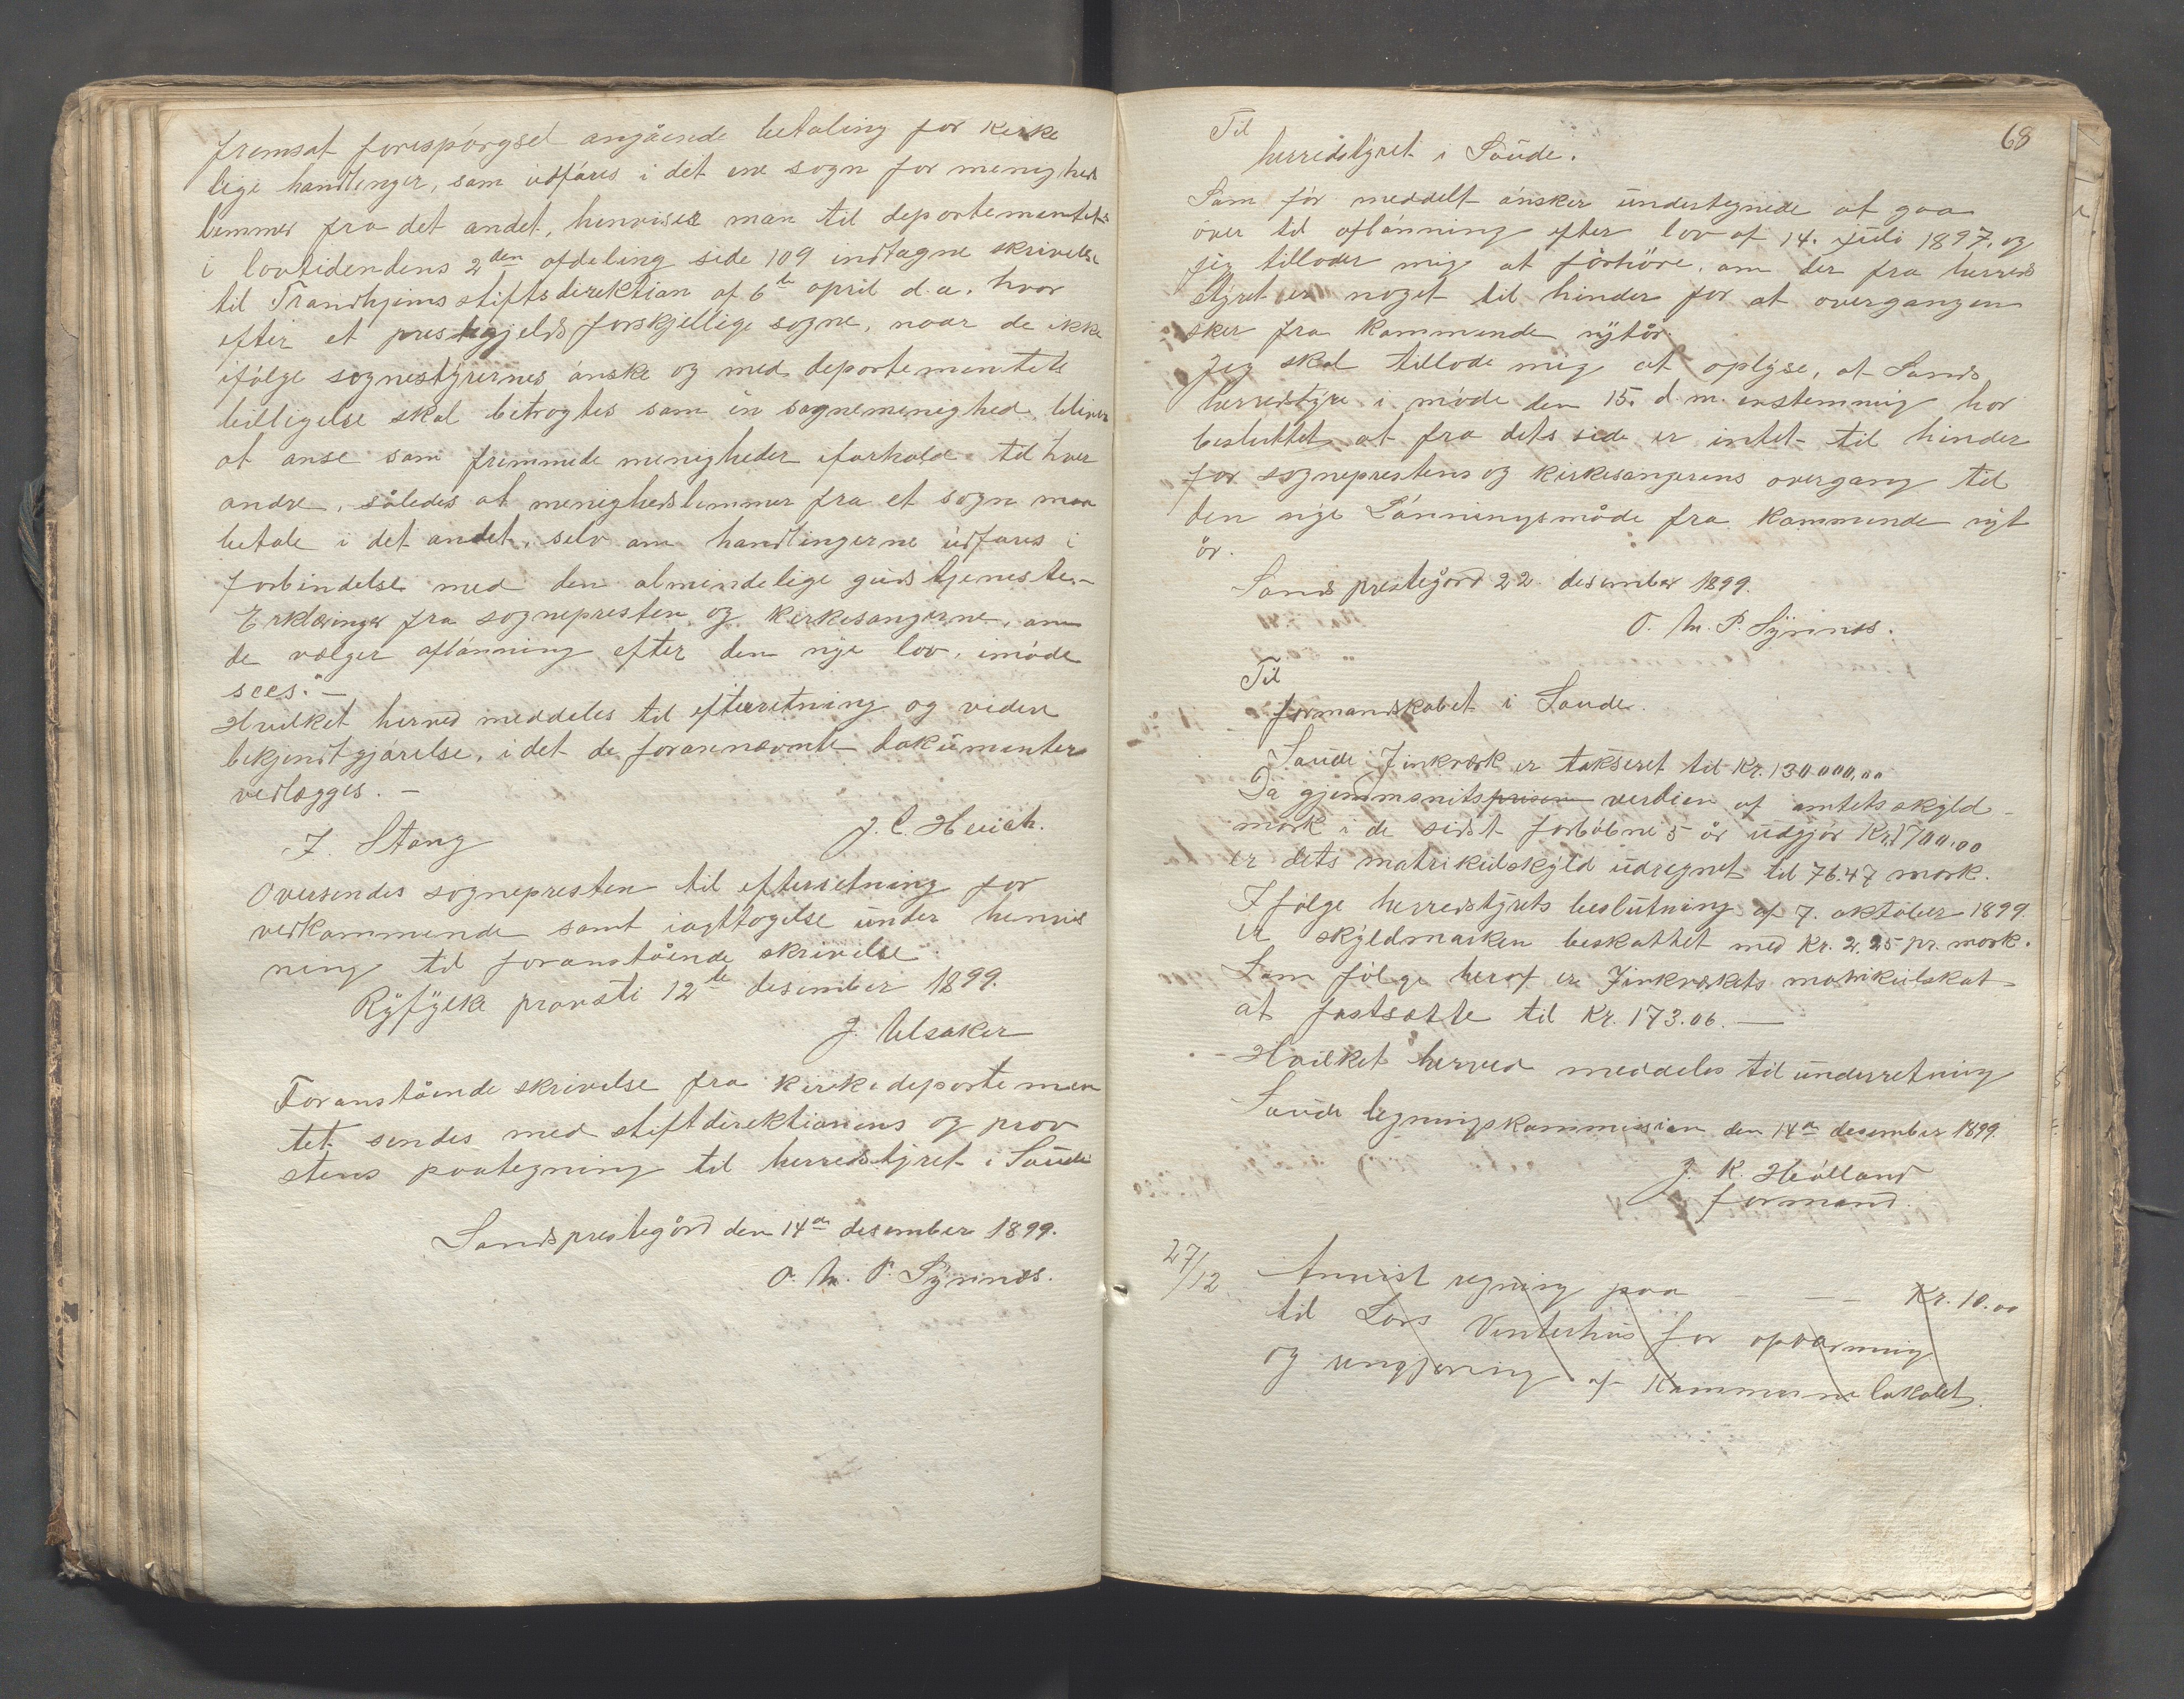 fremsat forespørgsel angående betaling for kirke
lige handlinger, som udføres i det ene sogn for menigheds
lemmer fra det andet, henviser man til departementets
i lovtidendens 2den afdeling side 109 indtagne skrivelse
til Trondhjems stiftsdirektion af 6te april d.a. hvor
efter et prestegjelds forskjellige sogne, naar de ikke
ifølge sognestyrernes ønske og med departementets
billigelse skal betragtes som en sognemenighed bliver
at anse som fremmede menigheder iforhold til hver
andre, således at menighedslemmer fra et sogn maa
betale i det andet, selv om handlingerne udføres i
forbindelse med den almindelige gudstjeneste.-
Erklæringer fra sognepresten og kirkesangerne, om
de vælger aflønning efter den nye lov, imøde
sees."-
Hvilket herved meddeles til efterretning og videre
bekjendtgjørelse, i det de forannævnte dokumenter
vedlægges. -
F. Stang J. C. Heuch.
Oversendes sognepresten til efterretning for
vedkommende samt iagttagelse under henvis
ning til foranstående skrivelse
Ryfylke provsti 12te desember 1899.
J. Ulsaker
Foranstående skrivelse fra kirkedepartemen
tet sendes med stiftdirektionens og prov
stens paategning til herredstyret i Saude
Sands prestegård den 14de desember 1899.
O. M. P. Synnes.
68
Til
herredstyret i Saude.
Som før meddelt ønsker undertegnede at gaa
over til aflønning efter lov af 14. juli 1897, og
jeg tillader mig at forhøre, om der fra herreds
styret er noget til hinder for at overgangen
sker fra kommende nytår.
Jeg skal tillade mig at oplyse, at Sands
herredstyre i møde den 15. d.m. enstemmig har
besluttet at fra dets side er intet til hinder
for sogneprestens og kirkesangerens overgang til
den nye Lønningsmåde fra kommende nyt
år.
Sands prestegård 22. desember 1899.
O. M. P. Synnes.
Til
formandskabet i Saude.
Saude Zinkværk er takseret til Kr. 130000,00
Da gjennemsnitsprisen verdien af amtets skyld-
mark i de sidst forløbne 5 år udgjør Kr. 1700.00
er dets matrikulskyld udregnet til 76.47 mark.
Ifølge herredstyrets beslutning af 7. oktober 1899.
er skyldmarken beskattet med Kr. 2,25 pr. mark.
Som følge heraf er Zinkværkets matrikulskat
at fastsætte til Kr. 173.06. —
- Hvilket herved meddeles til underretning
Saude ligningskommission den 14de desember 1899.
J. K. Hølland
formand.
27/12 Anvist regning paa - - Kr. 10.00
til Lars Vinterhus for opvarming
og rengjøring af Kommunelokalet.